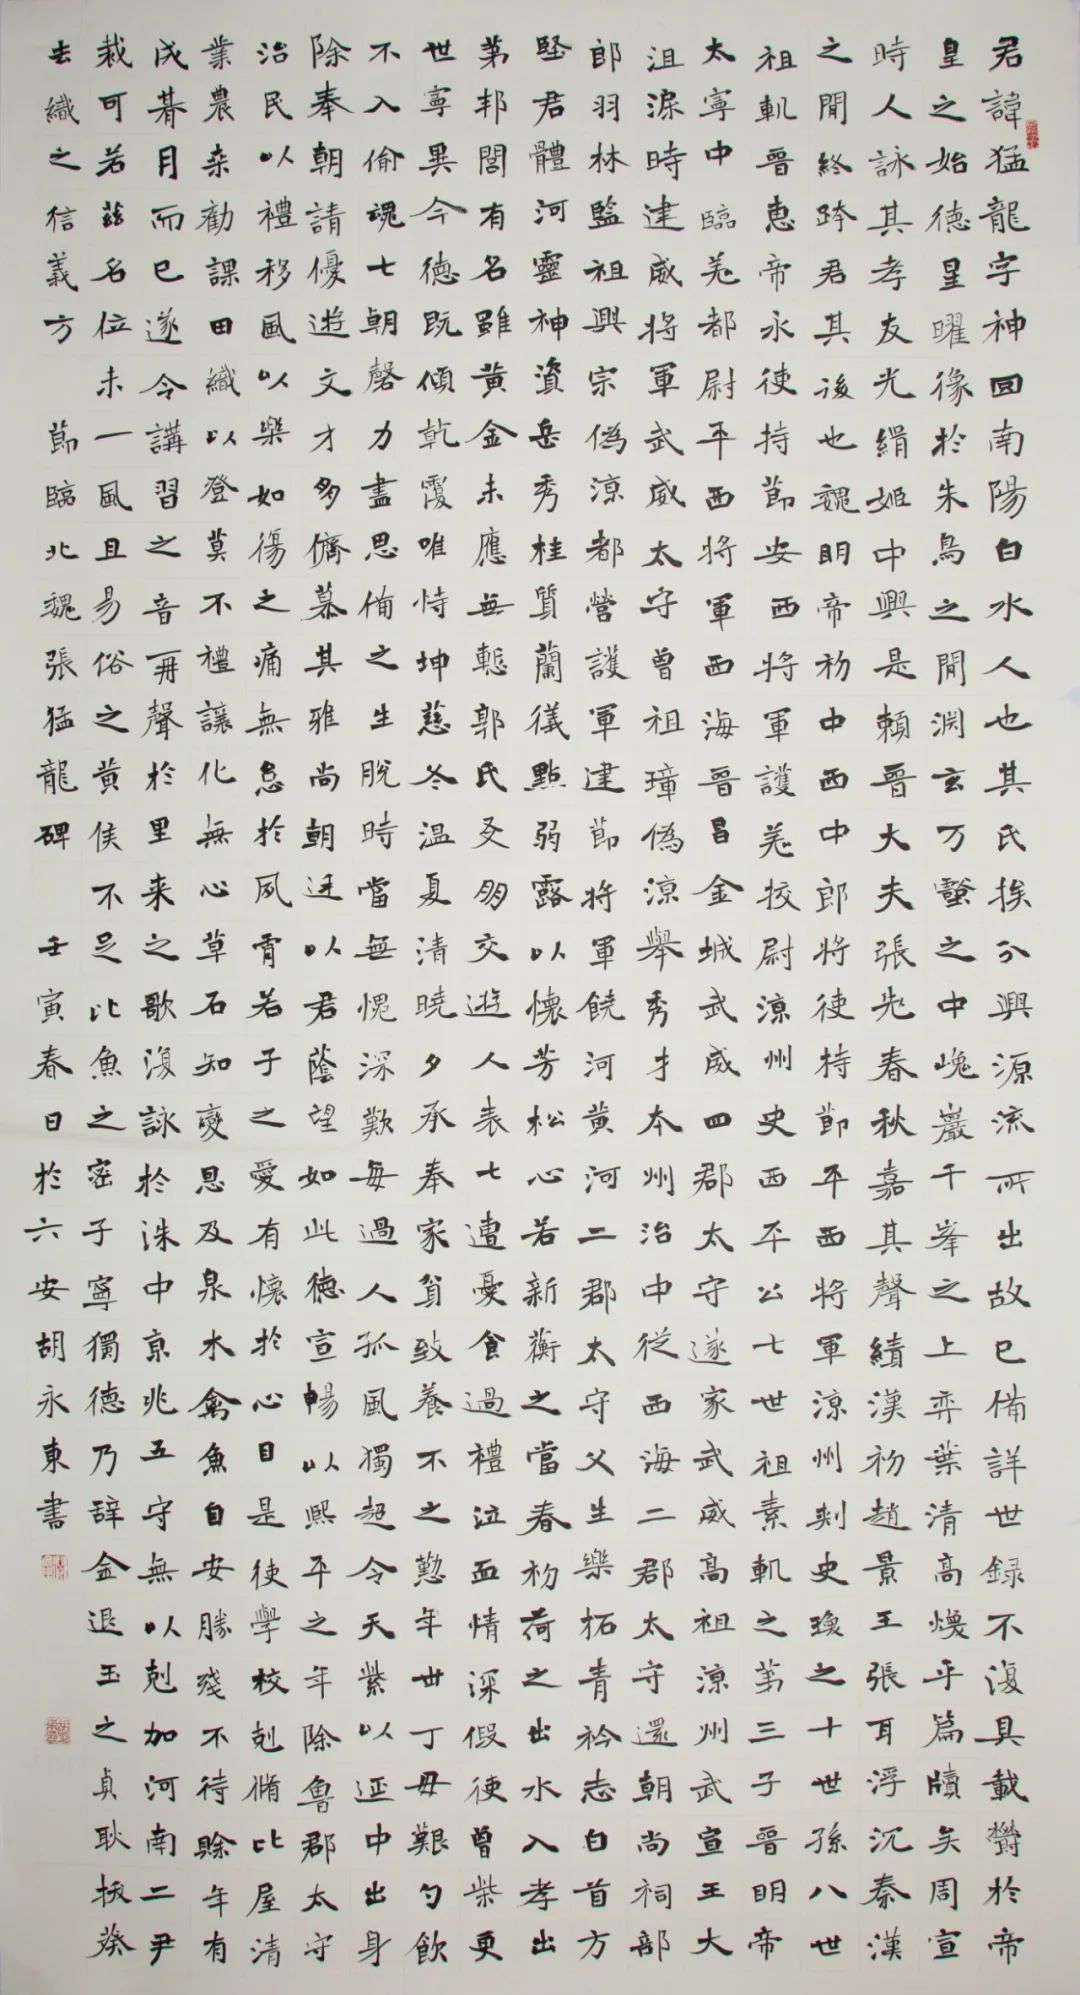 君諱猛龍字神囧南陽白水人也其氏族分興源流所出故已備詳世錄不復具載欝於帝
皇之始德星曜像於朱鳥之閒淵玄万壑之中巉巖千峯之上弈葉清高煥乎篇牘矣周宣
時人詠其孝友光緝姬中興是賴晉大夫張老春秋嘉其聲績漢初趙景王張耳浮沉秦漢
之閒終跨君其後也魏明帝初中西中郎將使持節平西將軍涼州刺史瓊之十世孫八世
祖軌晉惠帝永使持節安西將軍護羌校尉涼州史西平公七世祖素軌之第三子晉明帝
太寧中臨羌都尉平西將軍西海晉昌金城武威四郡太守遂家武威高祖涼州武宣王大
沮渠時建威將軍武威太守曾祖璋偽涼舉秀才本州治中從西海二郡太守還朝尚祠部
郎羽林監祖興宗偽涼都營護軍建節將軍饒河黃河二郡太守父生樂拓青衿志白首方
堅君體河靈神資岳秀桂質蘭儀點弱露以懷芳松心若新蘅之當春初荷之出水入孝出
第邦閭有名雖黃金未應無慙郭氏友朋交遊人表七遭憂食過禮泣血情深假使曾柴更
世寧異今德既傾乾覆唯恃坤慈冬温夏清曉夕承奉家貧致養不之懃年丗丁毋艱勺飲
不入偷魂七朝磬力盡思備之生脫時當無愧深歎每過人孤風獨超令天紫以延中出身
除奉朝請優遊文才多儕慕其雅尚朝廷以君蔭望如此德宣暢以熙平之年除魯郡太守
治民以禮移風以樂如傷之痛無怠於夙宵若子之愛有懷於心目是使學校剋脩比屋清
業農桑勸課田織以登莫不禮讓化無心草石知變恩及泉木禽魚自安勝殘不待賖年有
成朞月而已遂令講習之音再聲於里来之歌復詠於洙中京兆五守無以剋加河南二尹
裁可若茲名位未一風且易俗之黃侯不足比魚之密子寧獨德乃辞金退玉之貞耿拔葵
去織之信義方　節臨北魏張猛龍碑　壬寅春日於六安胡永東書